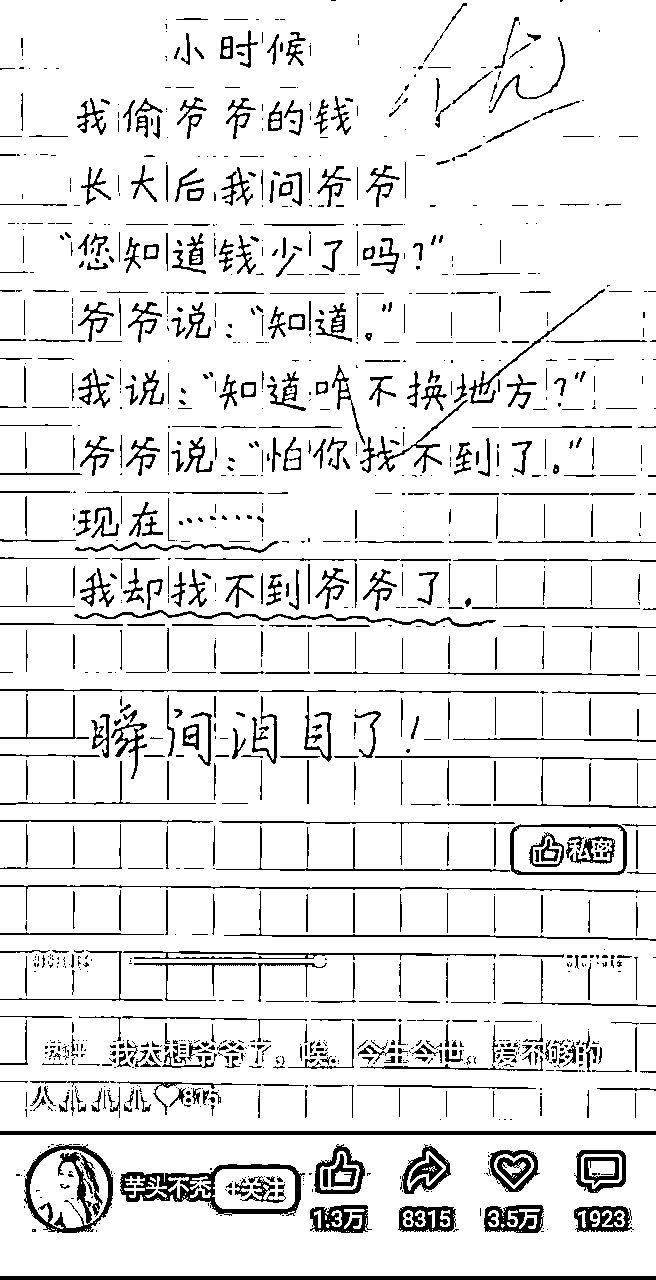 小时候
优
我偷爷爷的钱
长大后我问爷爷
“您知道钱少了吗?”
爷爷说:“知道。”
我说:“知道咋不换地方?”
爷爷说:“怕你找不到了。”
现在……
我却找不到爷爷了.
瞬间泪目了!
私密
热评 我太想爷爷了。唉。今生今世。爱不够的
人🙏🙏🙏♡815
芋头不秃 +关注
1.3万 8315 3.5万 1923